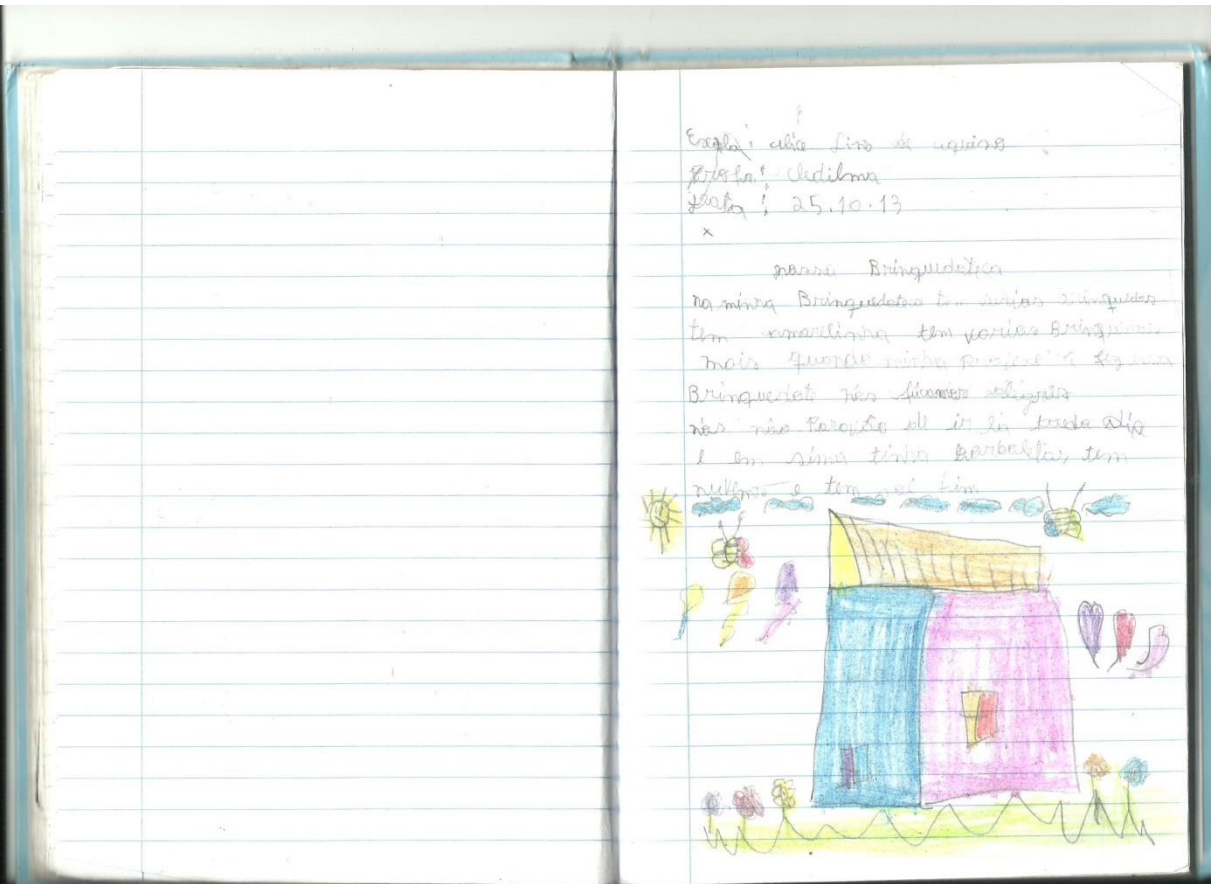 Escola: alice Lins de aquino
profa: Cledilma
data: 25.10.13
x
nossa Brinquedoteca
na minha Brinquedoteca tem varios Brinquedos
tem amarelinha tem varias Brinquedos
mais quando minha fez
Brinquedote nós ficamos alegres
nós não de ir lá toda dia
e em sima tinha Barboletas tem
nuvens e tem sol Fim